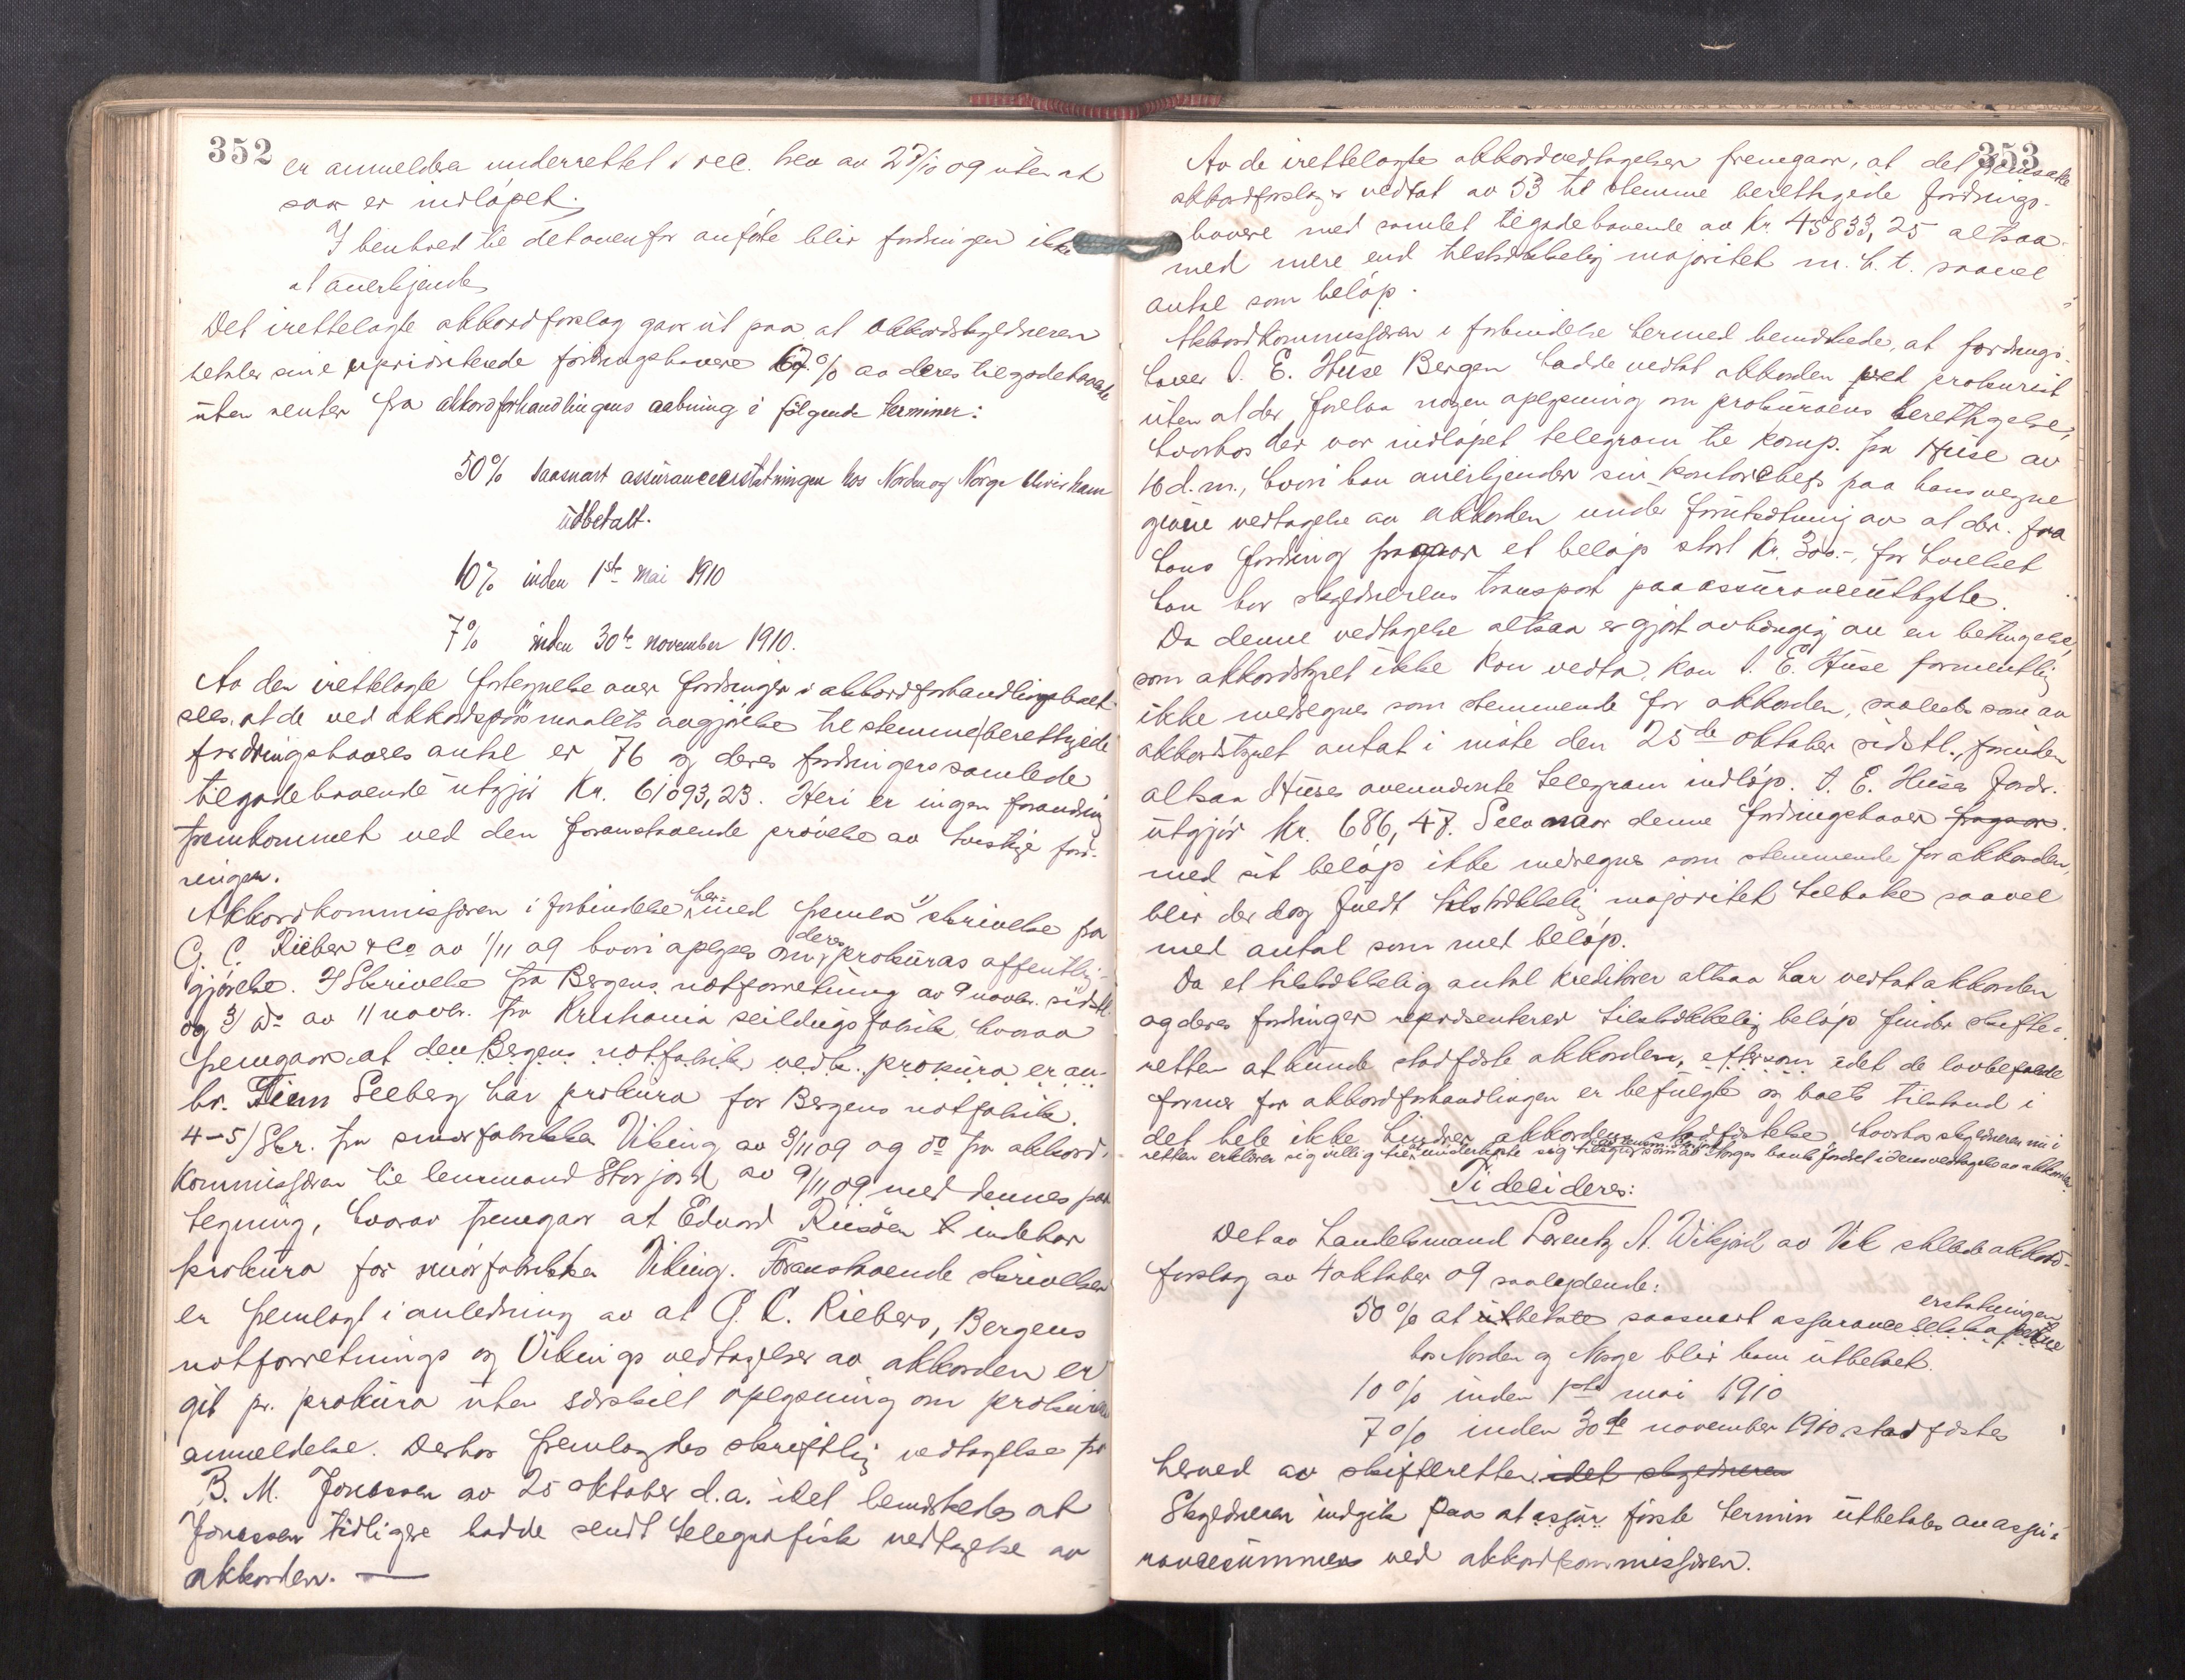 352
er anmeldra underrettet i rec. brev av 27/10 09 uten at
svar er indløpet.
I henhold til det ovenfor anførte blir fordringen ikke
at anerkjende
Det irettelagte akkordforslag gaar ut paa at akkordskyldneren
betaler sine uprioriterede fordringshavere 67 % av deres tilgodehavende
uten renter fra akkordforhandlingens aabning i følgende terminer:
50 % saasnart assuranceerstatningen hos Norden og Norge bliver ham
udbetalt.
10 % inden 1ste mai 1910
7 % inden 30te november 1910.
Av den irettelagte fortegnelse over fordringer i akkordforhandlingsboet
sees, at de ved akkordspørsmaalets avgjørelse til stemme berettigede
fordringshaveres antal er 76 og deres fordringers samlede
tilgodehavende utgjør Kr. 61093,23. Heri er ingen forandring
fremkommet ved den foranstaaende prøvelse av tvistige ford-
ringer.
Akkordkommissæren i forbindelse hermed fremla 1/ skrivelse fra
G. C. Rieber & Co av 1/11 09 hvori oplyses om deres prokuras offentlig-
gjørelse. 2/ Skrivelse fra Bergens notforretning av 9 novbr. sidstl.
og 3/ do av 11 novbr. fra Kristiania seildugsfabrik hvorav
fremgaar, at den Bergens notfabrik vedk. prokura er an-
hr. Seeberg har prokura for Bergens notfabrik.
4-5/ Skr. fra smørfabrikken Viking av 3/11 09 og do fra akkord-
kommissæren til lensmand Storjord av 9/11 09 med dennes paa-
tegning, hvorav fremgaar at Edvard Riisøen indehar
prokura for smørfabrikken Viking. Foranstaaende skrivelser
er fremlagt i anledning av at G. C. Riebers, Bergens
notforretnings og Vikings vedtagelser av akkorden er
git pr. prokura uten særskilt oplysning om prokura
anmeldelse. Derhos fremlagdes skriftlig vedtagelse fra
B. M. Jonassen av 25 oktober d.a. idet bemerkedes at
Jonassen tidligere hadde sendt telegrafisk vedtagelse av
akkorden. —
353
Av de irettelagte akkordvedtagelser fremgaar, at det fremsatte
akkordforslag er vedtat av 53 til stemme berettigede fordrings-
havere med samlet tilgodehavende av Kr. 45833,25 altsaa
med mere end tilstrækkelig majoritet m. h. t. saavel
antal som beløp.
Akkordkommissæren i forbindelse hermed bemerkede, at fordrings-
haver I. E. Huse Bergen hadde vedtat akkorden ved prokurist
uten at der forelaa nogen oplysning om prokuraens berettigelse,
hvorhos der var indløpet telegram til komp. fra Huse av
16 d.m., hvori han anerkjender sin kontorchefs paa hans vegne
givne vedtagelse av akkorden under forutsætning av at der fra
hans fordring fragaar et beløp stort Kr. 300.-, for hvilket
han har skyldnerens transport paa assuranceutbytte.
Da denne vedtagelse altsaa er gjort avhængig av en betingelse,
som akkordstyret ikke kan vedta, kan I. E. Huse formentlig
ikke medregnes som stemmende for akkorden, saaledes som av
akkordstyret antat i møte den 25de oktober sidstl., forinden
altsaa Huses ovennævnte telegram indløp. I. E. Huses fordr.
utgjør Kr. 686,48. Selv naar denne fordringshaver fragaar
med sit beløp ikke medregnes som stemmende for akkorden,
blir der dog fuldt tilstrækkelig majoritet tilbake saavel
med antal som med beløp.
Da et tilstrækkelig antal kreditorer altsaa har vedtat akkorden
og deres fordringer repræsenterer tilstrækkelig beløp finder skifte-
retten at kunde stadfæste akkorden, eftersom idet de lovbefalede
former for akkordforhandlingen er befulgte og boets tilstand i
det hele ikke hindrer akkordens stadfæstelse hvorhos skyldneren nu i
retten erklærer sig villig til at underkaste sig Norges bank fordret i dens vedtagelse av akkorden.
Ti decideres:
Det av handelsmand Lorentz A. Wikjord av Vik stillede akkord-
forslag av 4 oktober 09 saalydende:
50 % at utbetale saasnart assurance selskaperne erstatningen
hos Norden og Norge blir ham utbetalt.
10 % inden 1ste mai 1910
7 % inden 30de november 1910 stadfæstes
herved av skifteretten. idet skyldneren
Skyldneren indgik paa at assur første termin utbetales av assu-
rancesummen ved akkordkommissæren.